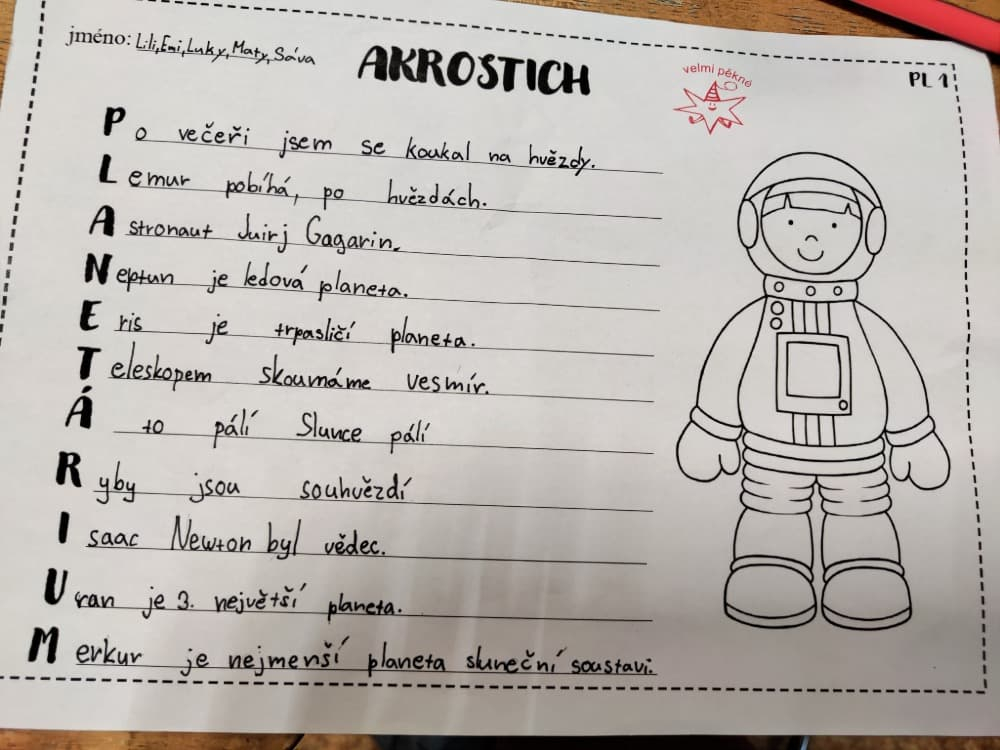 jméno: Lili, Emi, Luky, Maty, Sáva
AKROSTICH
velmi pěkné
PL 1
Po večeři jsem se koukal na hvězdy.
Lemur pobíhá, po hvězdách.
Astronaut Juirj Gagarin.
Neptun je ledová planeta.
Eris je trpasličí planeta.
Teleskopem skoumáme vesmír.
Á to pálí Slunce pálí
Ryby jsou souhvězdí
Isaac Newton byl vědec.
Uran je 3. největší planeta.
Merkur je nejmenší planeta sluneční soustavi.